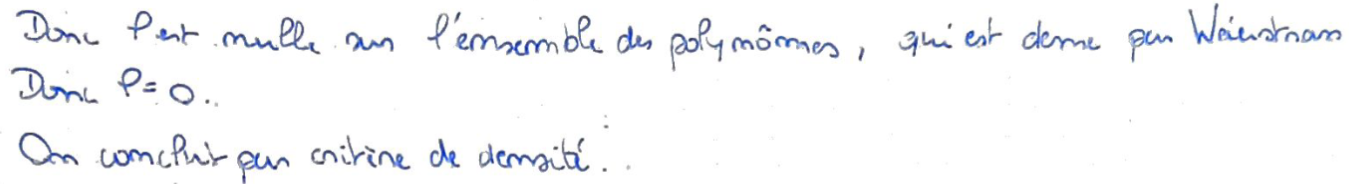 Donc l est nulle sur l'ensemble des polynômes, qui est dense par Weierstrass
Donc l=0.
On conclut par critère de densité.